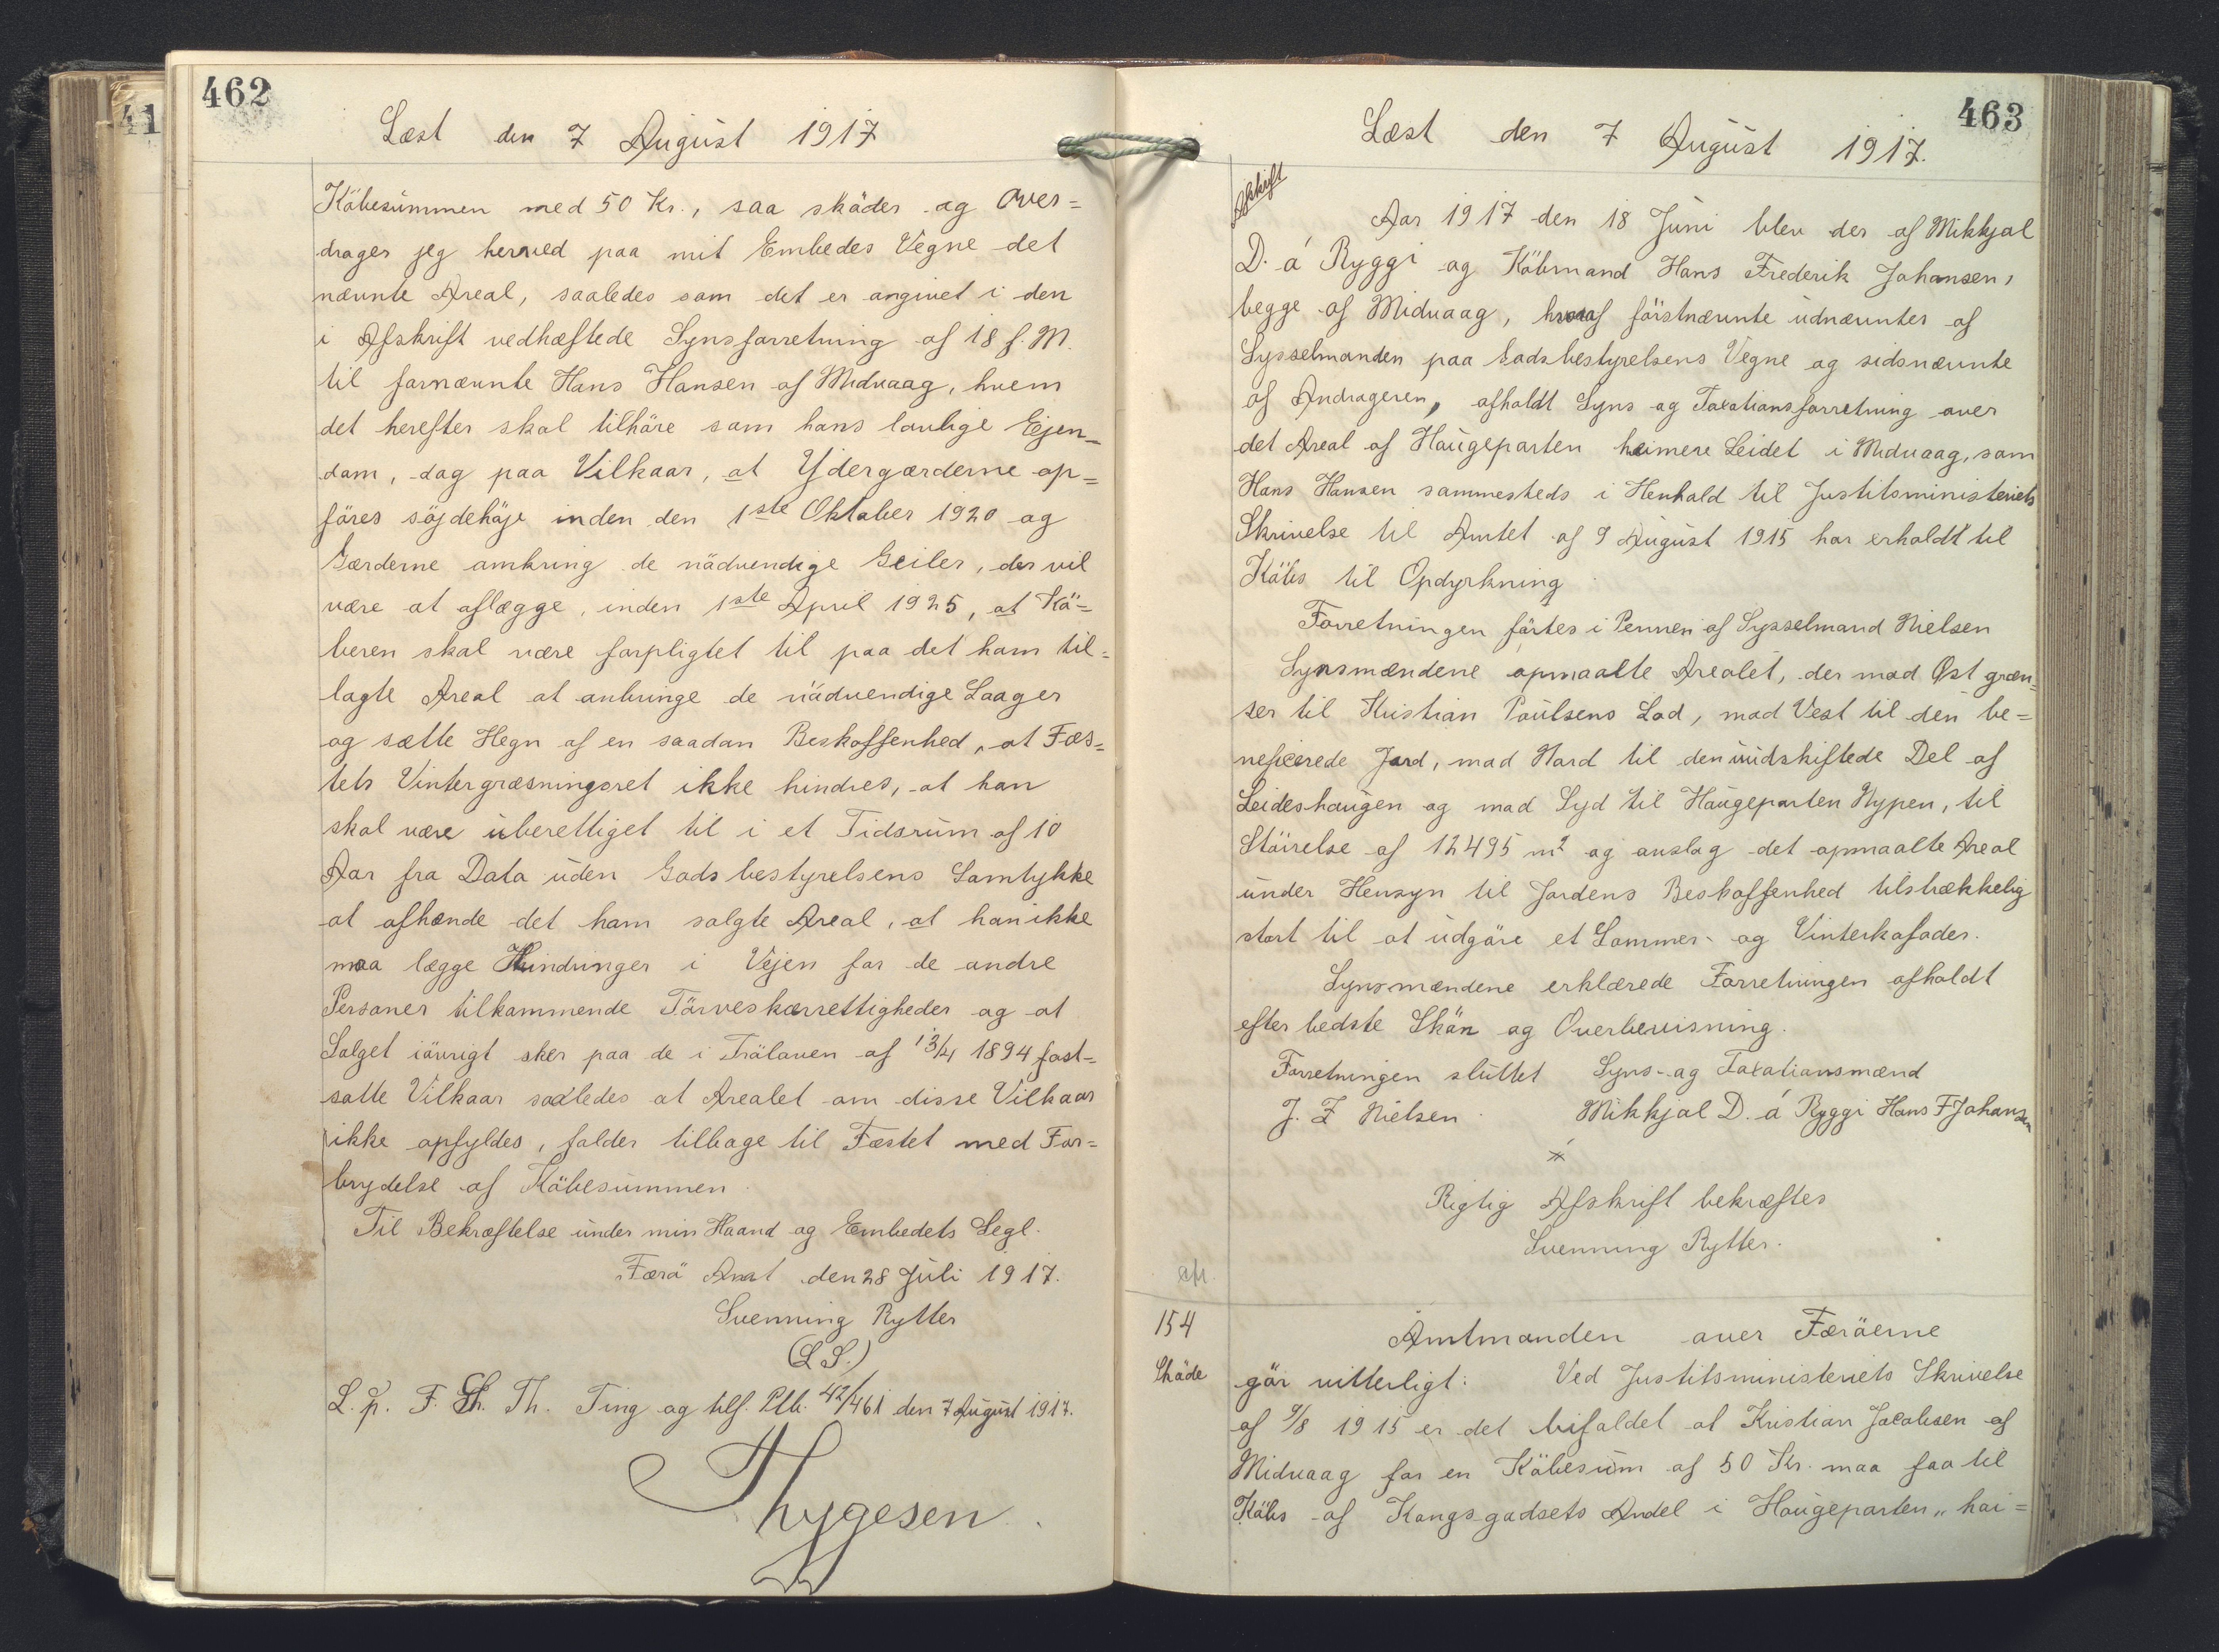 462
Læst den 7 August 1917
Köbesummen med 50 Kr., saa sköder og over=
drager jeg herved paa mit Embedes Vegne det
nævnte Areal, saaledes som det er angivet i den
i Afskrift vedhæftede Synsforretning af 18 f. M.
til fornævnte Hans Hansen af Midvaag, hvem
det herefter skal tilhöre som hans lovlige Ejen=
dom, dog paa Vilkaar, at Ydergærderne op=
föres söjdehöje inden den 1ste Oktober 1920 og
Gærderne omkring de nödvendige Geiler, der vil
være at aflægge, inden 1ste April 1925, at Kö=
beren skal være forpligtet til paa det ham til=
lagte Areal at anbringe de nödvendige Laager
og sætte Hegn af en saadan Beskaffenhed, at Fæs=
tets Vintergræsningsret ikke hindres, at han
skal være uberettiget til i et Tidsrum af 10
Aar fra Dato uden Godsbestyrelsens Samtykke
at afhænde det ham solgte Areal, at han ikke
maa lægge Hindringer i Vejen for de andre
Personer tilkommende Törveskærrettigheder og at
Salget iövrigt sker paa de i Frälaven af 13/4 1894 fast=
satte Vilkaar saaledes at Arealet om disse Vilkaar
ikke opfyldes, falder tilbage til Fæstet med For=
brydelse af Köbesummen.
Til Bekræftelse under min Haand og Embedets Segl.
Færö Amt den 28 Juli 1917.
Svenning Rytter
(L S.)
L. p. F. Sh. Th. Ting og tilf. Ptb. 42/461 den 7 August 1917.
Thygesen.
463
Læst den 7 August 1917.
Afskrift
Aar 1917 den 18 Juni blev der af Mikkjal
D. á Ryggi og Köbmand Hans Frederik Johansen,
begge af Midvaag, hvoraf förstnævnte udnævntes af
Sysselmanden paa Godsbestyrelsens Vegne og sidsnævnte
af Andrageren, afholdt Syns og Taxationsforretning over
det Areal af Haugeparten heimere Leidet i Midvaag, som
Hans Hansen sammesteds i Henhold til Justitsministeriets
Skrivelse til Amtet af 9 August 1915 har erholdt til
Köbs til Opdyrkning
Forretningen förtes i Pennen af Sysselmand Nielsen
Synsmændene opmaalte Arealet, der mod Øst græn=
ser til Kristian Poulsens Lod, mod Vest til den be=
neficerede Jord, mod Nord til den uudskiftede Del af
Leideshaugen og mod Syd til Haugeparten Nypen, til
Störrelse af 12495 m2 og anslog det opmaalte Areal
under Hensyn til Jordens Beskaffenhed tilstrækkelig
stort til at udgöre et Sommer- og Vinterkofoder.
Synsmændene erklærede Forretningen afholdt
efter bedste Skön og Overbevisning.
Forretningen sluttet Syns- og Taxationsmænd
J. F Nielsen. Mikkjal D. á Ryggi Hans F Johansen
Rigtig Afskrift bekræftes
Svenning Rytter.
154
Sköde
Amtmanden over Færöerne
gör vitterligt: Ved Justitsministeriets Skrivelse
af 9/8 1915 er det bifaldet at Kristian Jacobsen af
Midvaag for en Köbesum af 50 Kr. maa faa til
Köbs af Kongsgodsets Andel i Haugeparten „hai=